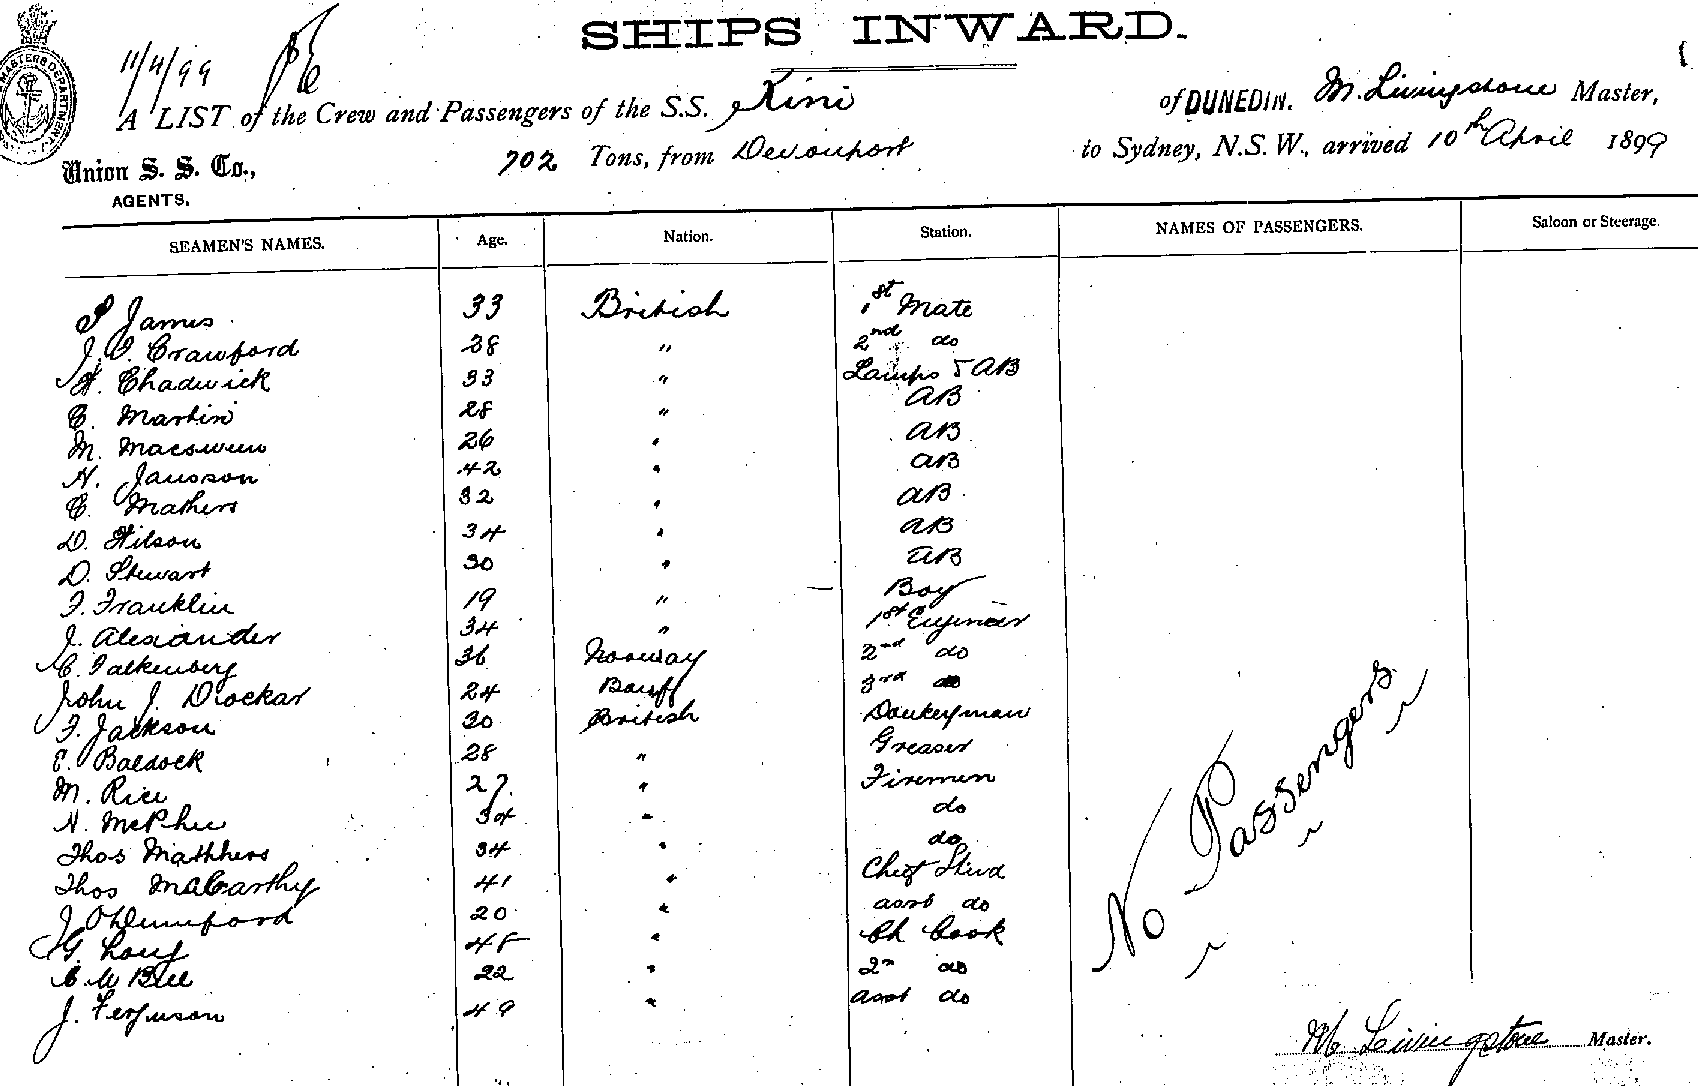 SHIPS INWARD.
11/4/99
A LIST of the Crew and Passengers of the S.S. Kini of DUNEDIN. M. Livingstone Master,
Union S. S. Co., AGENTS. 702 Tons, from Devonport to Sydney, N.S.W., arrived 10th April 1899
SEAMEN'S NAMES. Age. Nation. Station. NAMES OF PASSENGERS. Saloon or Steerage.
James 33 British 1st Mate
J. Crawford 28 " 2nd do
Chadwick 33 " Lamps & AB
C. Martin 28 " AB
M. Macswen 26 " AB
N. Jansson 42 " AB
C. Mathers 32 " AB
D. Wilson 34 " AB
D. Stewart 30 " AB
F. Franklin 19 " Boy
J. Alexander 34 " 1st Engineer
C. Falkenberg 36 Norway 2nd do
John J. Drockar 24 Banff 3rd do
F. Jackson 30 British Donkeyman
Baldock 28 " Greaser
M. Rice 27 " Firemen
N. McPhee 34 " do
Thos Matthers 34 " do
Thos McCarthy 41 " Chief Stwd
J. 20 " asst do
G. Long 45 " Ch Cook
22 " 2n do
J. Ferguson 49 " asst do
No Passengers
M Livingstone Master.